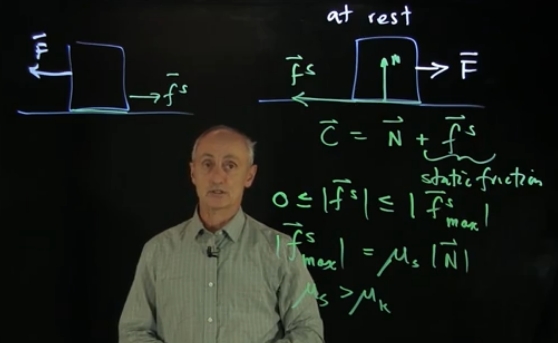 at rest
F⃗
f⃗ˢ
f⃗ˢ
N
F⃗
C⃗ = N⃗ + f⃗ˢ
static friction
0 ≤ |f⃗ˢ| ≤ |f⃗ˢmax|
|f⃗ˢmax| = μs |N⃗|
μs > μk